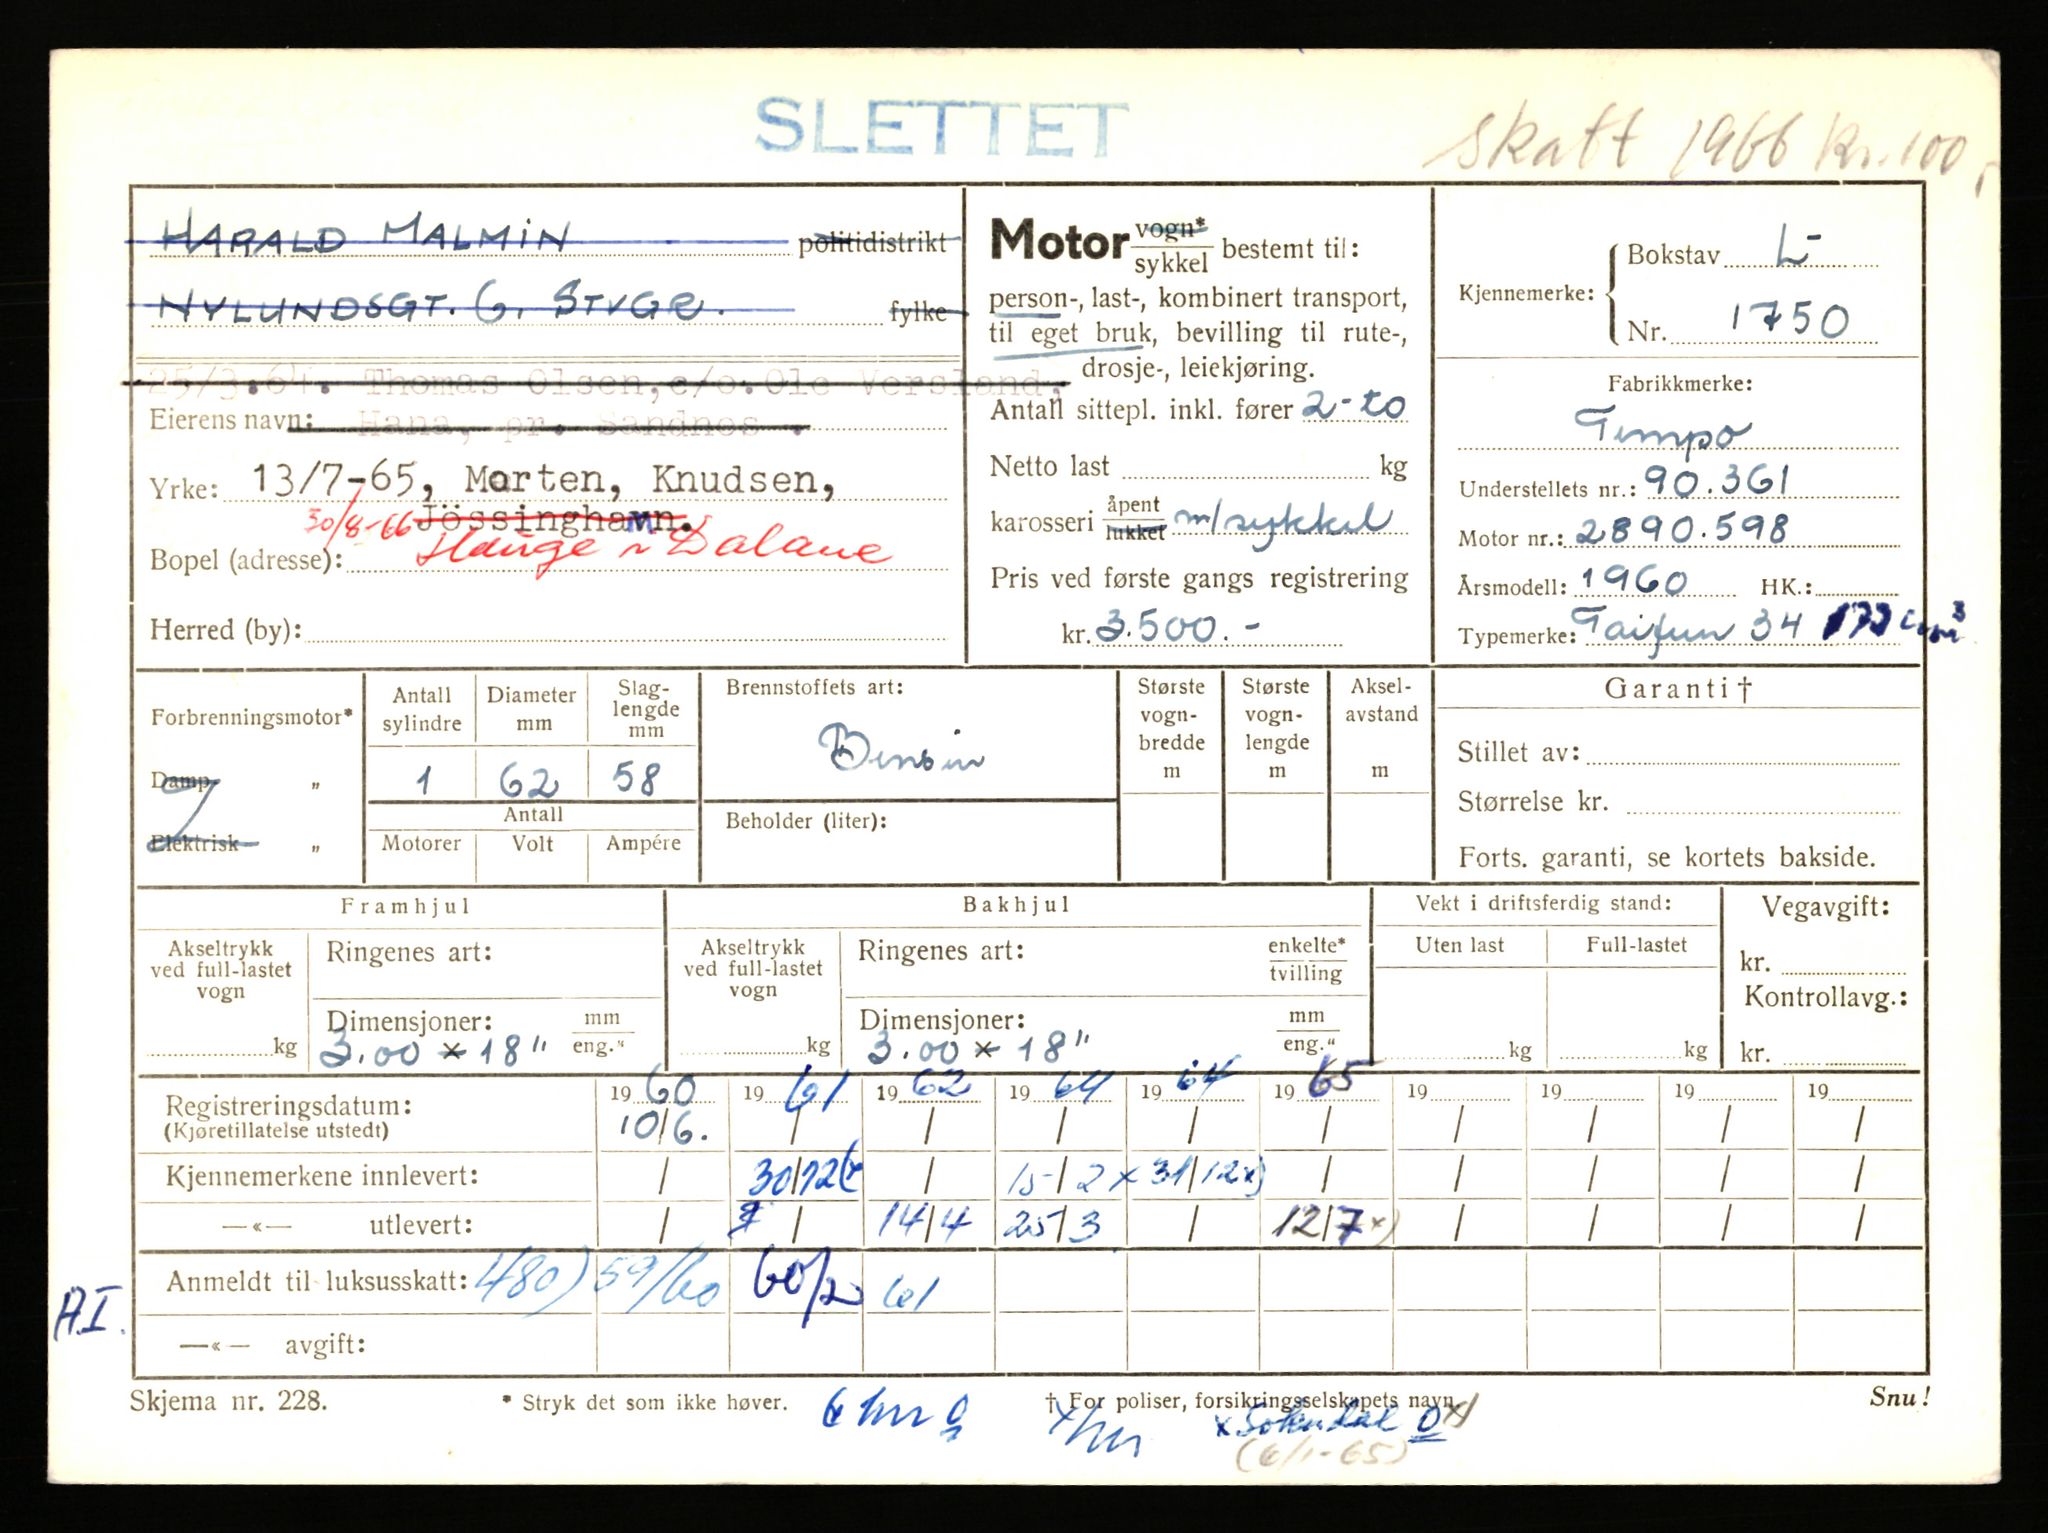 SLETTET
Skatt 1966 kr. 100,-
HARALD MALMIN politidistrikt
NYLUNDSGT. 6, STVGR. fylke
25/3.64. Thomas Olsen, c/o. Ole Versland,
Eierens navn: Hana, pr. Sandnes.
Yrke: 13/7-65, Morten, Knudsen,
30/8-66 Jössinghavn.
Bopel (adresse): Hauge i Dalane
Herred (by):
Motor vogn* / sykkel bestemt til:
person-, last-, kombinert transport,
til eget bruk, bevilling til rute-,
drosje-, leiekjøring.
Antall sittepl. inkl. fører 2-to
Netto last kg
karosseri åpent / lukket m/sykkel
Pris ved første gangs registrering
kr. 3.500.-
Kjennemerke: Bokstav L-
Nr. 1750
Fabrikkmerke:
Tempo
Understellets nr.: 90.361
Motor nr.: 2890.598
Årsmodell: 1960 HK.:
Typemerke: Taifun 34 173 ccm³
Forbrenningsmotor*
Damp „
Elektrisk „
Antall sylindre
Diameter mm
Slag-lengde mm
1 62 58
Antall
Motorer Volt Ampére
Brennstoffets art:
Bensin
Beholder (liter):
Største vogn-bredde m
Største vogn-lengde m
Aksel-avstand m
Garanti †
Stillet av:
Størrelse kr.
Forts. garanti, se kortets bakside.
Framhjul
Akseltrykk ved full-lastet vogn
kg
Ringenes art:
Dimensjoner: mm / eng."
3.00 x 18"
Bakhjul
Akseltrykk ved full-lastet vogn
kg
Ringenes art: enkelte* / tvilling
Dimensjoner: mm / eng."
3.00 x 18"
Vekt i driftsferdig stand:
Uten last Full-lastet
kg kg
Vegavgift:
kr.
Kontrollavg.:
kr.
19 60 19 61 19 62 19 64 19 64 19 65 19 19 19 19
Registreringsdatum: 10/6. / / / / / / / / /
(Kjøretillatelse utstedt)
Kjennemerkene innlevert: / 30/12 / 15/2 x 31/12 x) / / / / /
—«— utlevert: / / 14/4 25/3 / 12/7 x) / / / /
Anmeldt til luksusskatt: 480) 59/60 60/2 61
A.I.
—«— avgift:
Skjema nr. 228. * Stryk det som ikke høver. † For poliser, forsikringsselskapets navn. Snu!
x Sokndal 0 x)
(6/1-65)